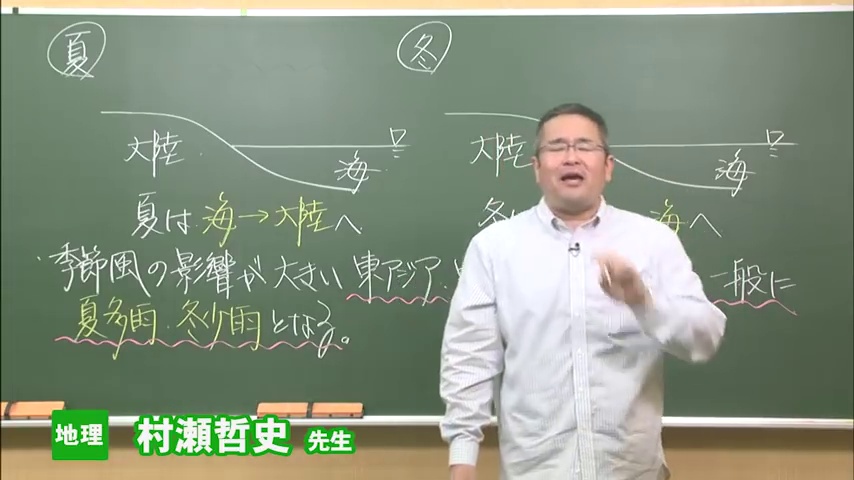 夏
冬
大陸
海
大陸
海
夏は 海→大陸へ
冬 海へ
季節風の影響が大きい 東アジア 一般に
夏多雨・冬少雨となる。
地理 村瀬哲史 先生